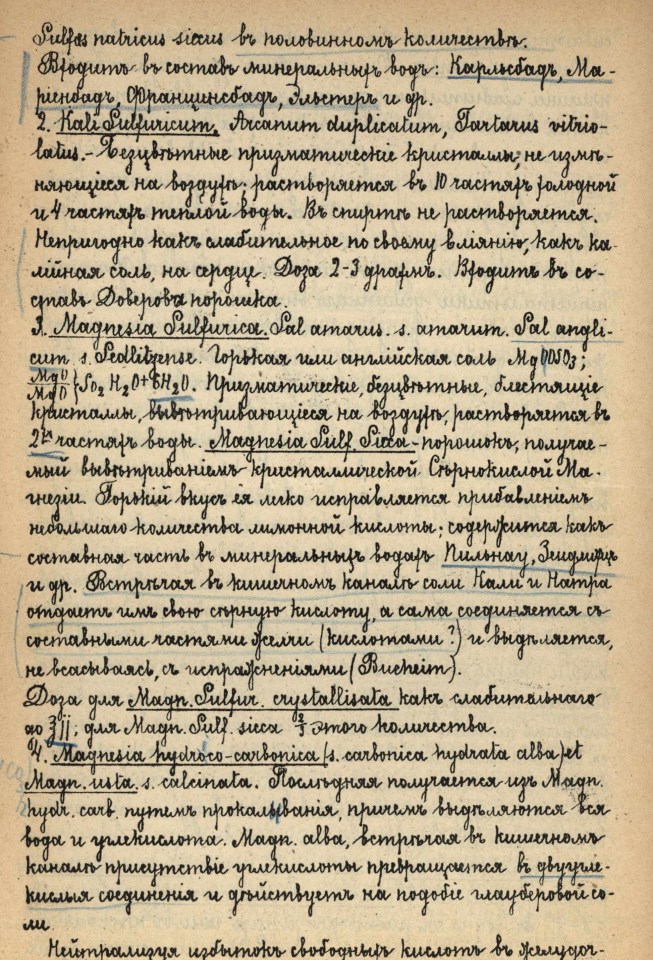 Sulfas natricus siccus въ половинномъ количествѣ.
Входитъ въ составъ минеральныхъ водъ: Карльсбадъ, Ма-
ріенбадъ, Францинсбадъ, Эльстеръ и др.
2. Kali Sulfuricum, Arcanum duplicatum, Tartarus vitrio-
latus.- Безцвѣтные призматическіе кристаллы, не измѣ-
няющіеся на воздухѣ; растворяется въ 10 частяхъ холодной
и 4 частяхъ теплой воды. Въ спиртѣ не растворяется.
Непригодно какъ слабительное по своему вліянію, какъ ка-
лійная соль, на сердце. Доза 2-3 драхм. Входитъ въ со-
ставъ Доверова порошка.
3. Magnesia Sulfurica. Sal amarus. s. amarum. Sal angli-
cum s. Sedlitzense. Горькая или англійская соль
SO2 H2O+6H2O. Призматическіе, безцвѣтные, блестящіе
кристаллы, вывѣтривающіеся на воздухѣ, растворяется въ
2хъ частяхъ воды. Magnesia Sulf. Sicca - порошокъ, получае-
мый вывѣтриваніемъ кристаллической Сѣрнокислой Ма-
гнезіи. Горькій вкусъ ея легко исправляется прибавленіемъ
небольшаго количества лимонной кислоты; содержится какъ
составная часть въ минеральныхъ водахъ Пильнау, Зейдлицъ
и др. Встрѣчая въ кишечномъ каналѣ соли Кали и Натра
отдаетъ имъ свою сѣрную кислоту, а сама соединяется съ
составными частями желчи (кислотами?) и выдѣляется,
не всасываясь, съ испражненіями (Bucheim).
Доза для Magn. Sulfur. crystallisata какъ слабительнаго
до ʒjj; для Magn. Sulf. sicca 2/3 этого количества.
4. Magnesia hydrico-carbonica (s. carbonica hydrata alba) et
Magn. usta. s. calcinata. Послѣдняя получается изъ Magn.
hydr. carb. путемъ прокаливанія, причемъ выдѣляются вся
вода и углекислота. Magn. alba, встрѣчая въ кишечномъ
каналѣ присутствіе углекислоты превращается въ двуугле-
кислыя соединенія и дѣйствуетъ на подобіе глауберовой со-
ли.
Нейтрализуя избытокъ свободныхъ кислотъ въ желудоч-